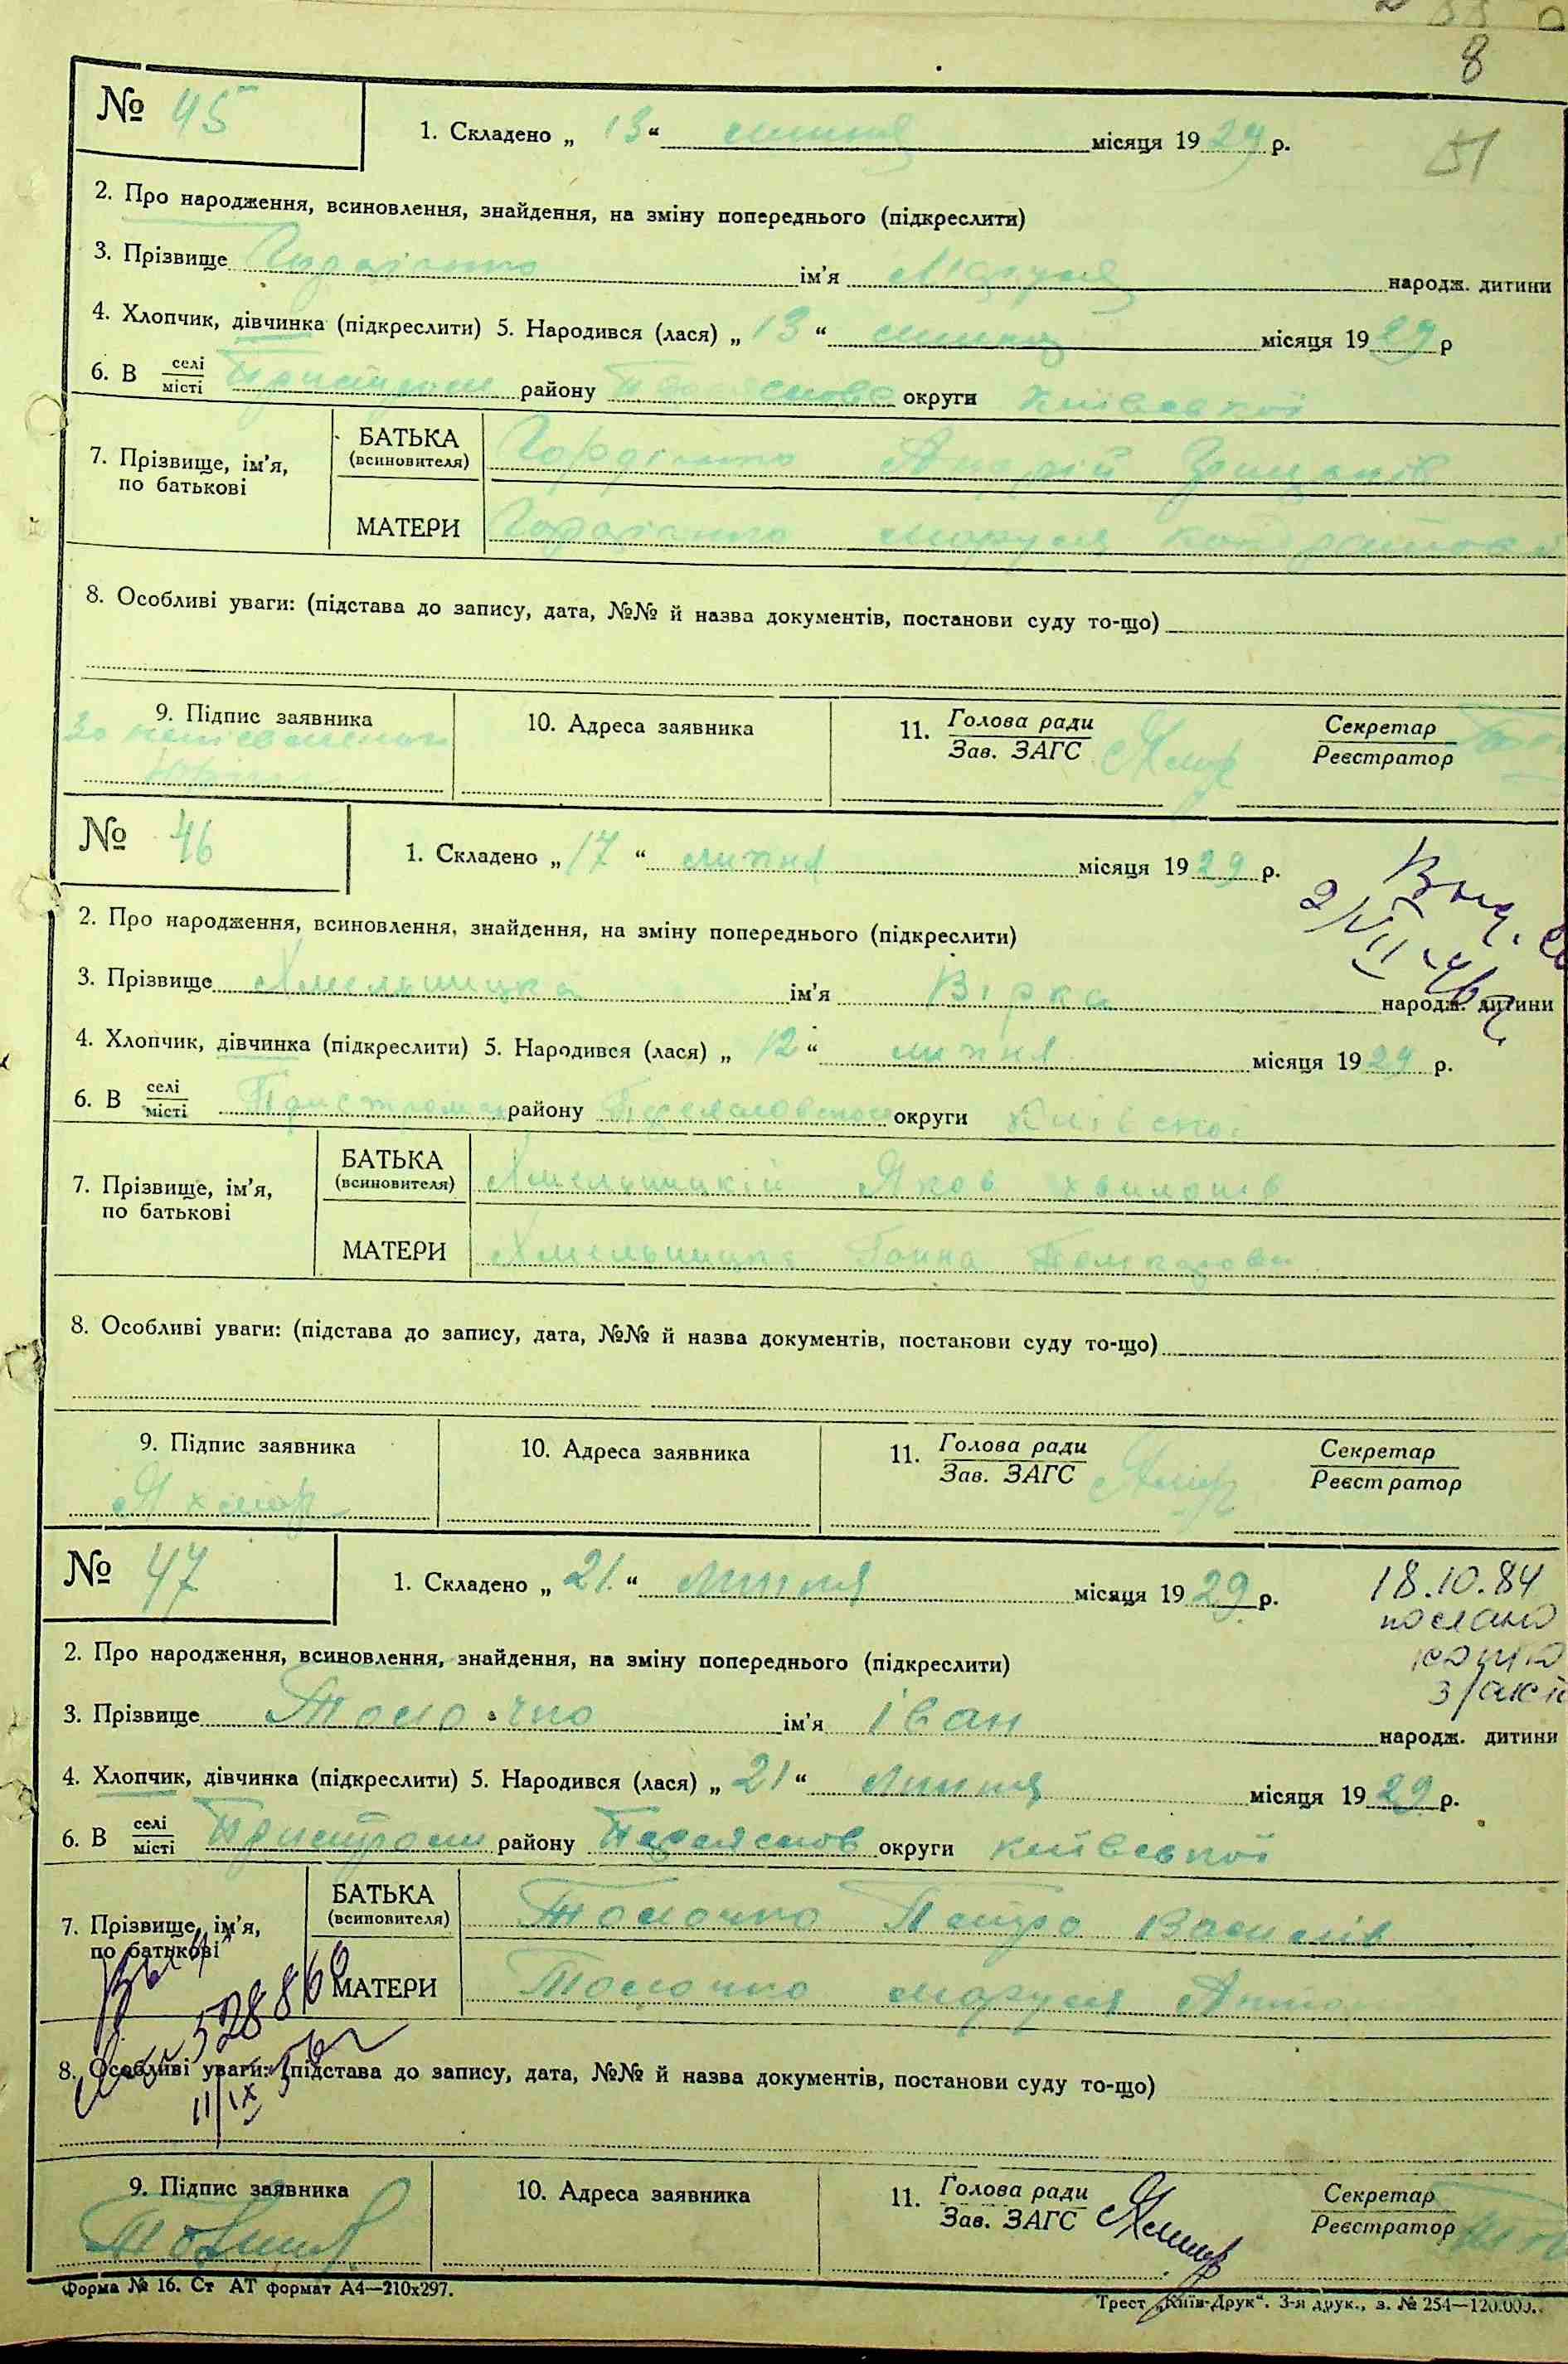 8
51
№ 45
1. Складено „ 13 “ липня місяця 1929 р.
2. Про народження, всиновлення, знайдення, на зміну попереднього (підкреслити)
3. Прізвище ім’я Маруся народж. дитини
4. Хлопчик, дівчинка (підкреслити) 5. Народився (лася) „ 13 “ липня місяця 1929 р
6. В селі/місті Пристроми району округи Київської
7. Прізвище, ім’я, по батькові
БАТЬКА (всиновителя) Андрій
МАТЕРИ Маруся
8. Особливі уваги: (підстава до запису, дата, №№ й назва документів, постанови суду то-що)
9. Підпис заявника 10. Адреса заявника 11. Голова ради/Зав. ЗАГС Секретар/Реєстратор
За неписьменного
№ 46
1. Складено „ 17 “ липня місяця 1929 р.
2/VII 46
2. Про народження, всиновлення, знайдення, на зміну попереднього (підкреслити)
3. Прізвище ім’я Вірка народж. дитини
4. Хлопчик, дівчинка (підкреслити) 5. Народився (лася) „ 12 “ липня місяця 1929 р.
6. В селі/місті Пристроми району Переяславської округи Київської
7. Прізвище, ім’я, по батькові
БАТЬКА (всиновителя) Яков
МАТЕРИ Ганна
8. Особливі уваги: (підстава до запису, дата, №№ й назва документів, постанови суду то-що)
9. Підпис заявника 10. Адреса заявника 11. Голова ради/Зав. ЗАГС Секретар/Реєстратор
№ 47
1. Складено „ 21 “ липня місяця 1929 р.
18.10.84
послано
копію
з/акт
2. Про народження, всиновлення, знайдення, на зміну попереднього (підкреслити)
3. Прізвище Толочко ім’я Іван народж. дитини
4. Хлопчик, дівчинка (підкреслити) 5. Народився (лася) „ 21 “ липня місяця 1929 р.
6. В селі/місті Пристроми району Переяслов округи Київської
7. Прізвище, ім’я, по батькові
БАТЬКА (всиновителя) Толочко Петро Василів
МАТЕРИ Толочко Маруся
528860
11/IX
8. Особливі уваги: (підстава до запису, дата, №№ й назва документів, постанови суду то-що)
9. Підпис заявника 10. Адреса заявника 11. Голова ради/Зав. ЗАГС Секретар/Реєстратор
Форма № 16. Ст АТ формат А4—210х297.
Трест „Київ-Друк“. 3-я друк., з. № 254—120.000.